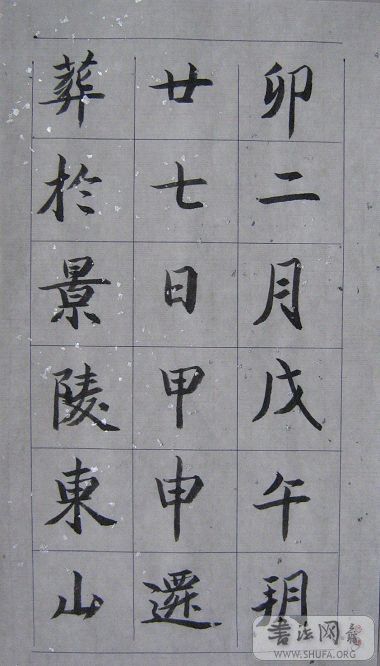 卯二月戊午朔
廿七日甲申遷
葬於景陵東山
書法网
WWW.SHUFA.ORG